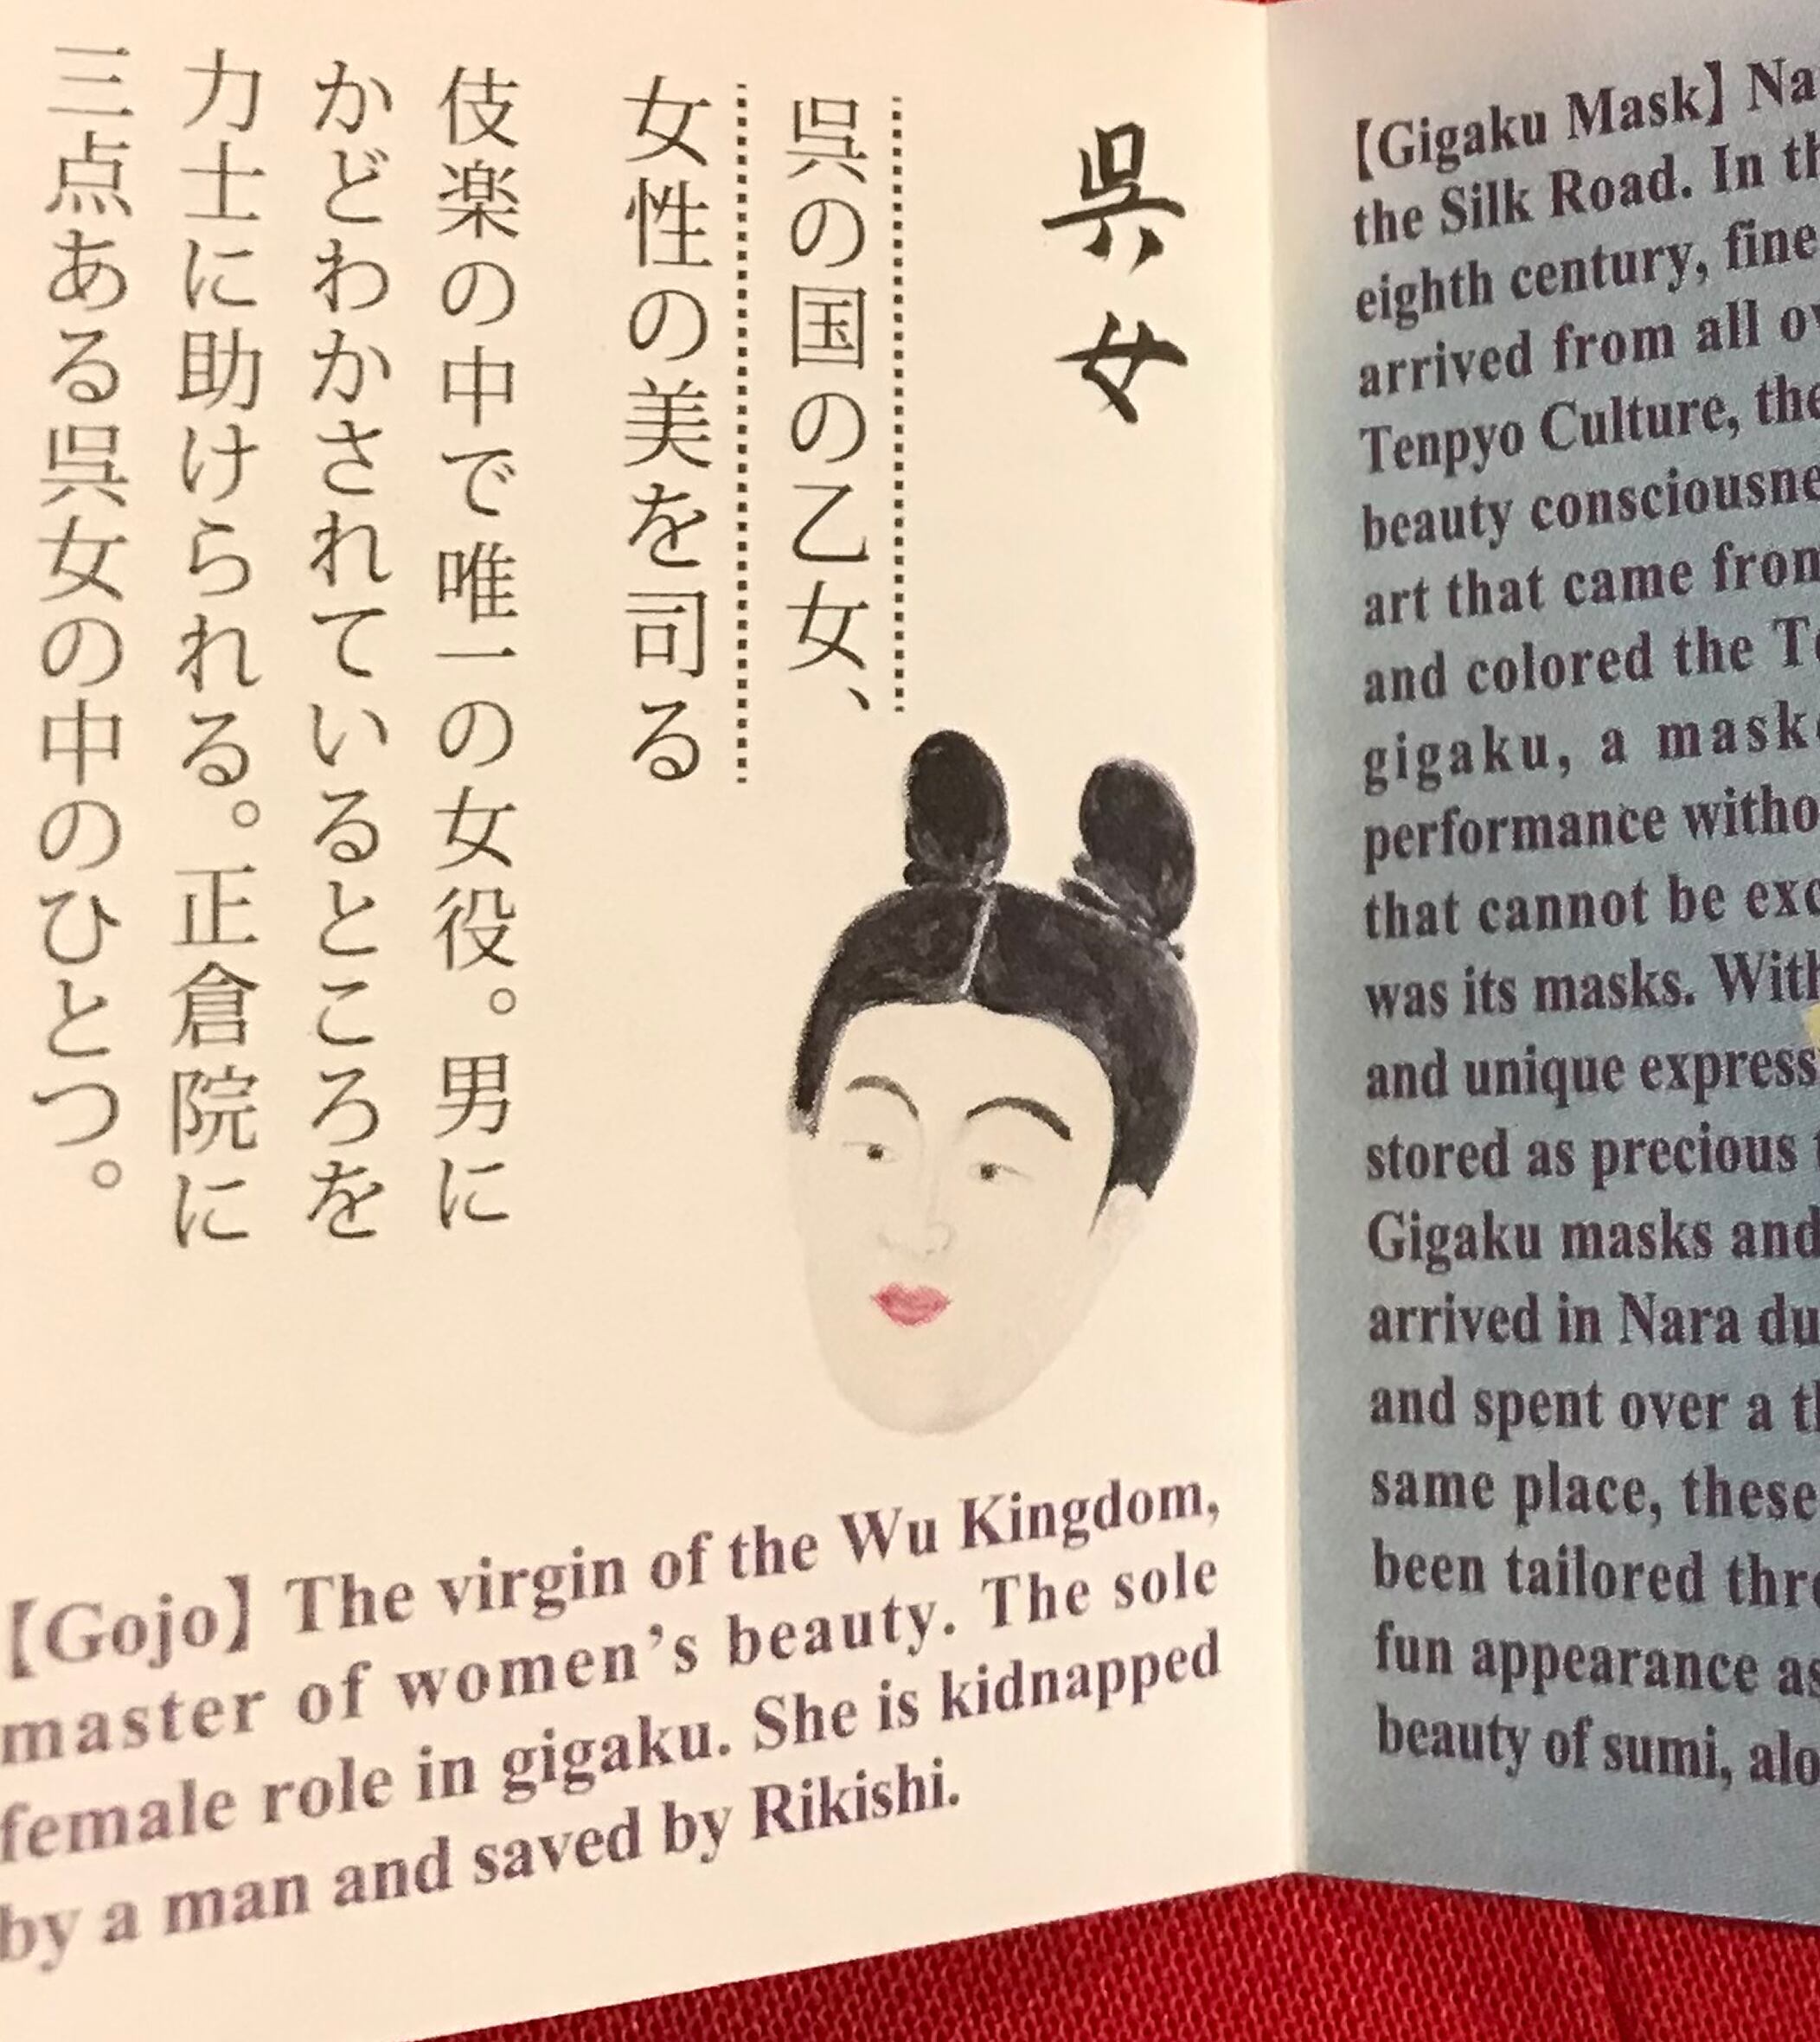 呉女
呉の国の乙女、
女性の美を司る
伎楽の中で唯一の女役。男に
かどわかされているところを
力士に助けられる。正倉院に
三点ある呉女の中のひとつ。
【Gojo】The virgin of the Wu Kingdom,
master of women's beauty. The sole
female role in gigaku. She is kidnapped
by a man and saved by Rikishi.
【Gigaku Mask】
the Silk Road. In
eighth century, fine
arrived from all
Tenpyo Culture, the
beauty
art that came from
and colored the
gigaku, a
performance
that cannot be
was its masks.
and unique
stored as precious
Gigaku masks and
arrived in Nara
and spent over a
same place, these
been tailored
fun appearance as
beauty of sumi,